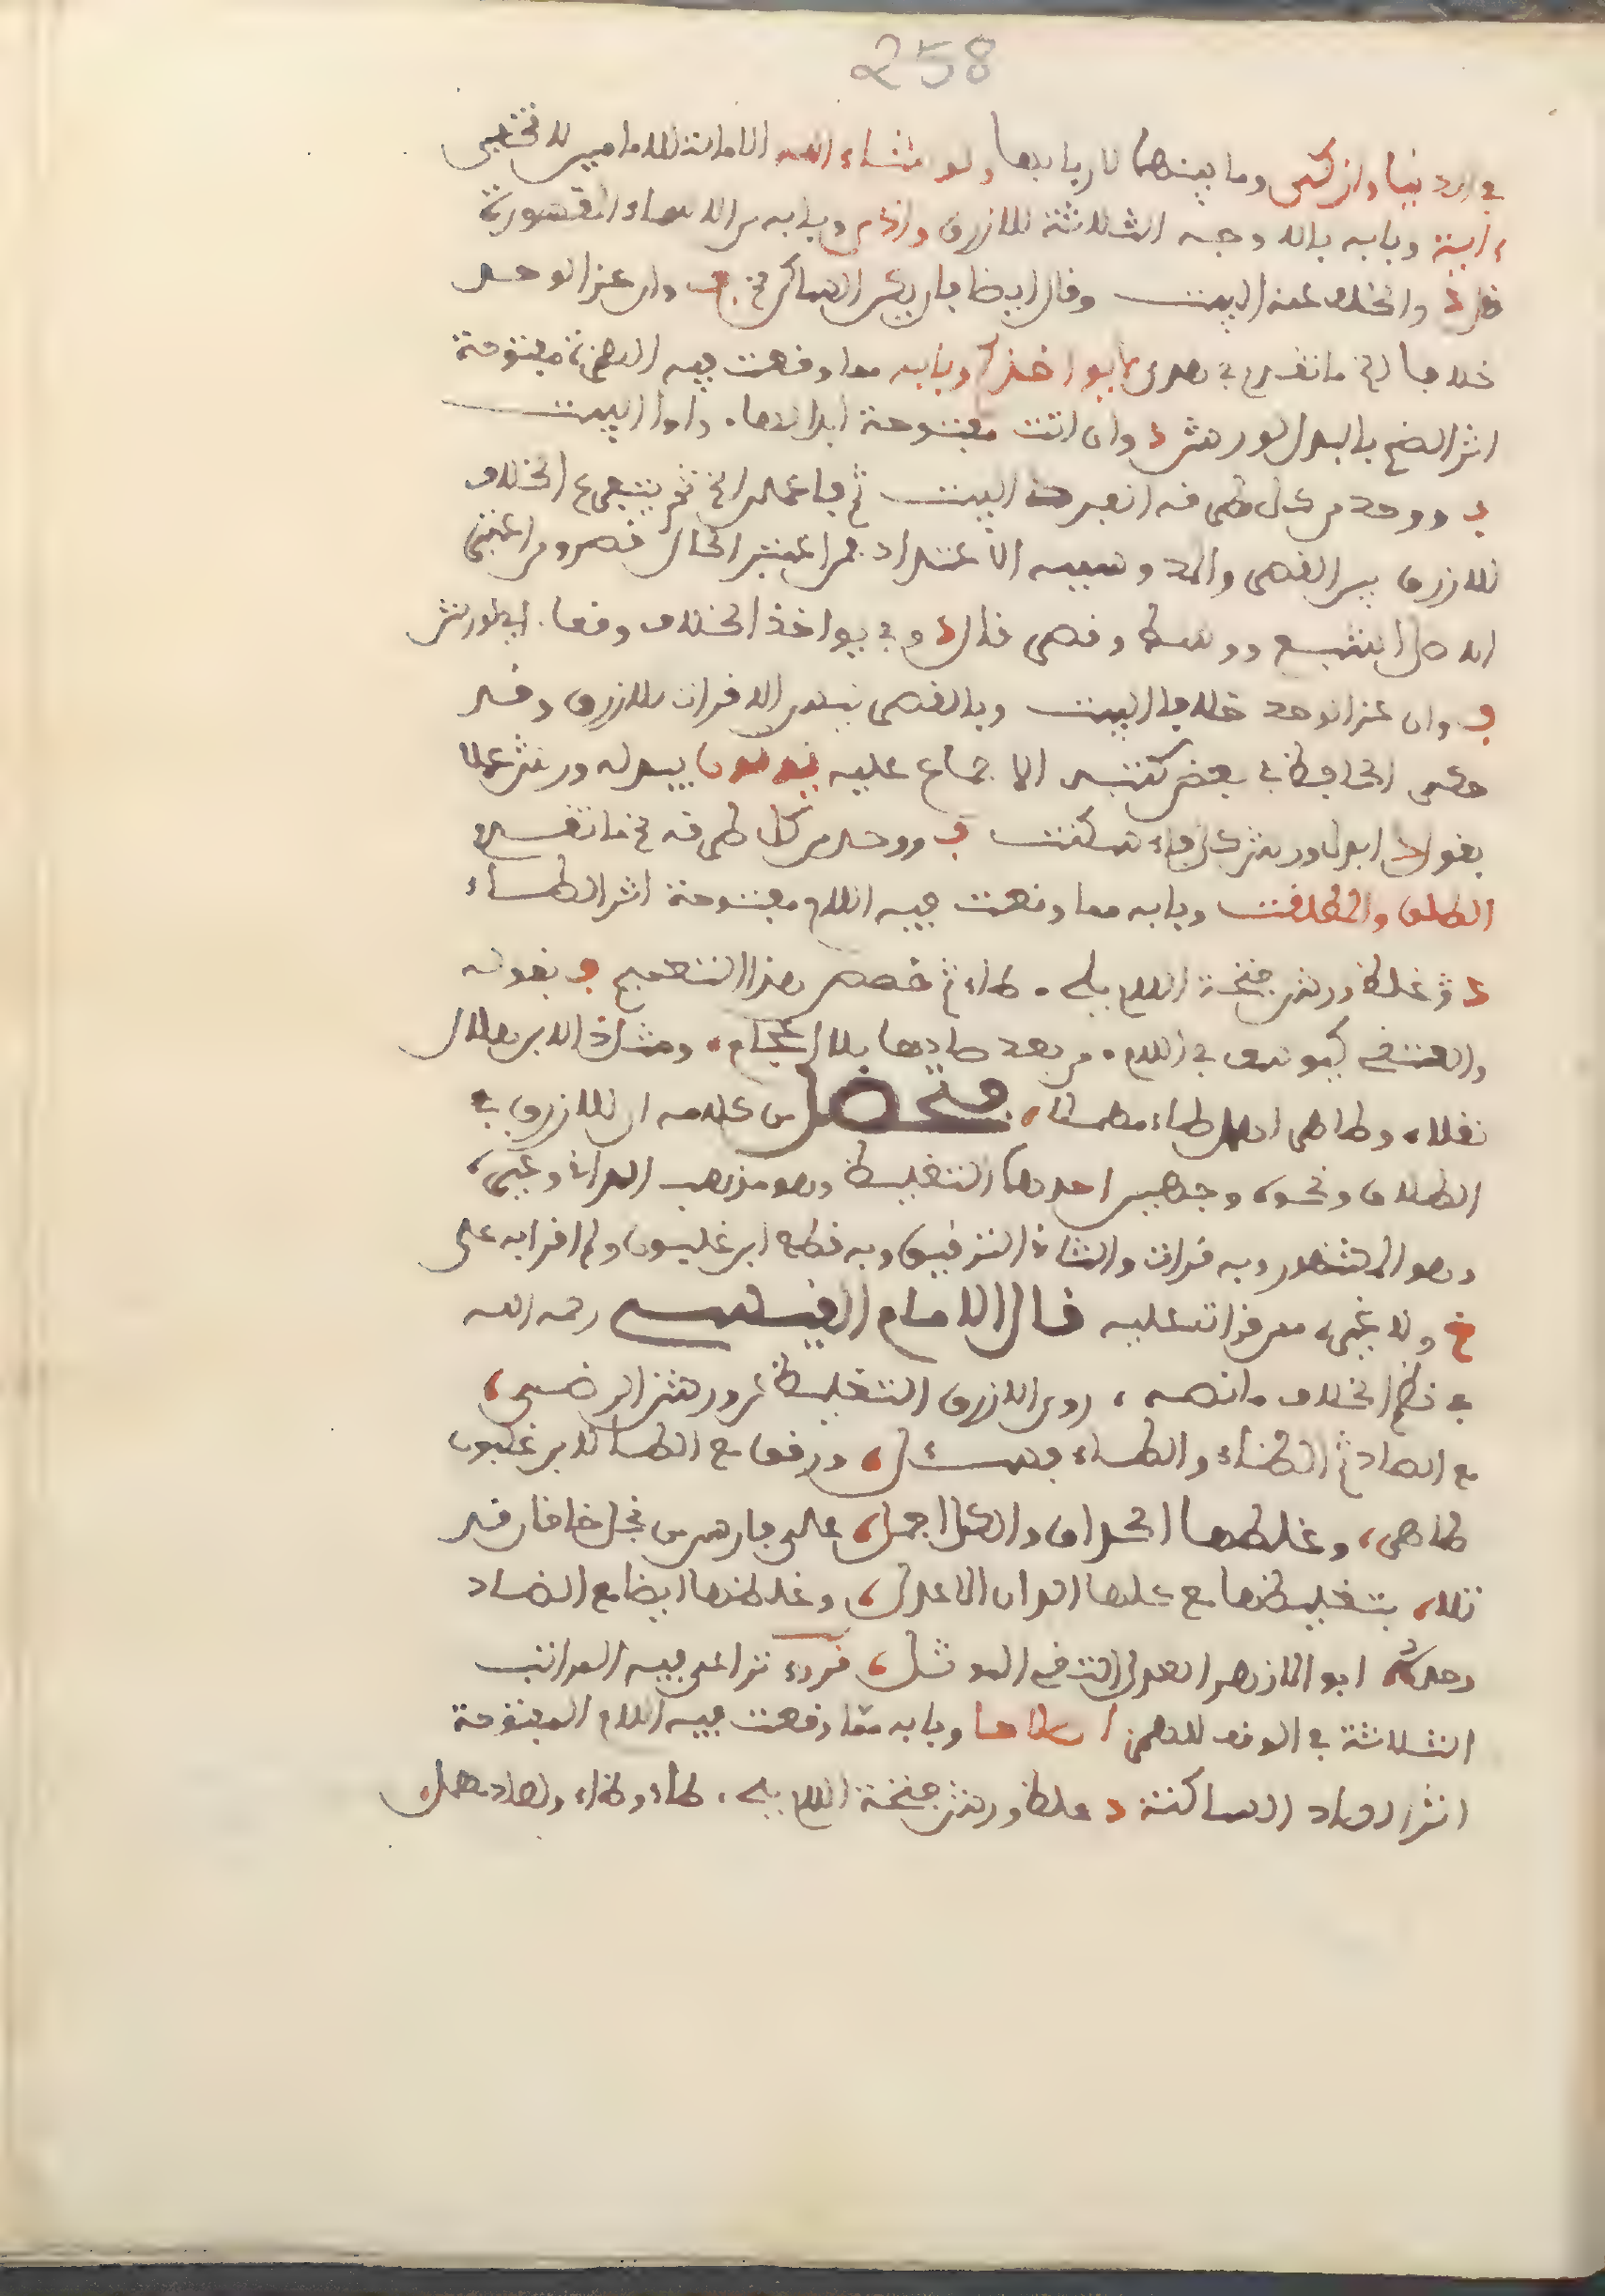 258
في الدنيا وازكى وما بينهما لاربابها ولو شاء الله الامالة للامامين لا تخفى
ءاية وبابه بالاوجه الثلاثة للازرق واذى وبابه من الاسماء المقصورة
قال د والخلف عنه البيت وقال ايضا فان يكن الساكن في ف وان عن الوحد
خلافا الخ ما تقدم في هدى يواخذكم وبابه مما وقعت فيه الهمزة مفتوحة
اثر الضم بالبدل لورش د وان اتت مفتوحة ابدالها واوا البيت
ف ووحد من كل طرفه انفرد البيت ثم فاعمل الخ ثم يتفرع الخلاف
للازرق بين القصر والمد وسببه الاعتداد فمن اعتبر الحال قصر ومن اعتبر
الاصل اشبع ووسط وقصر قال د وفي يواخذ الخلاف وقعا لورش
ف وان عن الوحد خلافا البيت وبالقصر نبدل الاقران للازرق وقد
حكى الحافظ في بعض كتبه الاجماع عليه يومون يبدله ورش عملا
بقول د ابدل ورش كل فاء سكنت ف ووحد من كل طرفه في ما تقدم
الطلاق والمطلقت وبابه مما وقعت فيه اللام مفتوحة اثر الطاء
د ق غلظ ورش فتحة اللام يلي طاء ثم خصص هذا التعميم ف بقوله
والعتقي كيوسف في اللام من بعد صادها بلا اعجام ومثل ذا لابن هلال
نقلا وطاهر اهمل طاء مهملا فتحصل من كلامه ان للازرق في
الطلاق ونحوه وجهين احدهما التغليظ وهو مذهب الداني وغيره
وهو المشهور وبه قرات والثاني الترقيق وبه قطع ابن غلبون ولم اقرا به على
خ ولا غيره ممن قرات عليه قال الامام القيسي رحمه الله
في نظم الخلاف ما نصه روى الازرق التغليظ عن ورش الرضى
مع الصاد ثم الظاء والطاء ورقق مع الطا لابن غلبون
طاهر وغلظها الحداق والكل اجمل على فارس من نجل خاقان قد
تلا بتغليظها مع كلها الدان الاعدل وغلظها ايضا مع الضاد
وحده ابو الازهر العدل العتقي فرد تراعى فيه المراتب
الثلاثة في الوقف للهمز اصلاحا وبابه مما وقعت فيه اللام المفتوحة
اثر الصاد الساكنة د غلظ ورش فتحة اللام يلي طاء وظاء ولصاد مهمل